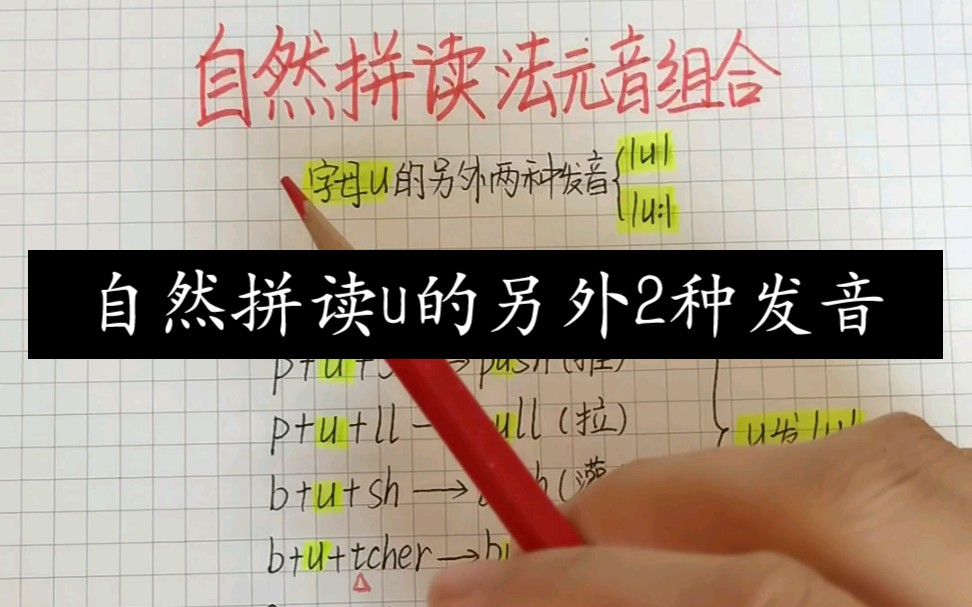 自然拼读法元音组合
字母u的另外两种发音{/u/
/u:/
自然拼读u的另外2种发音
p+u+ →push(推)
p+u+ll → ull(拉)
u发/u/
b+u+sh → h(灌
b+u+tcher→bu